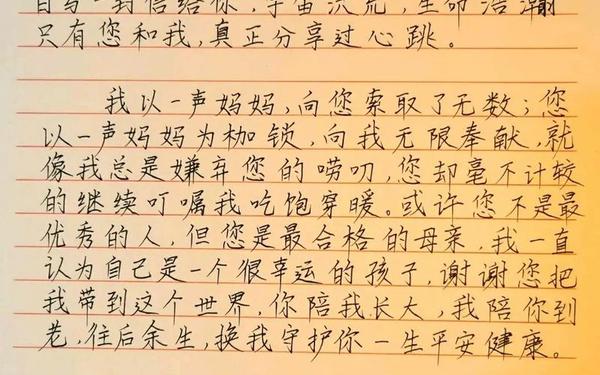 自写一封信给你,宇宙洪荒,生命浩瀚
只有您和我,真正分享过心跳。
我以一声妈妈,向您索取了无数;您
以一声妈妈为枷锁,向我无限奉献,就
像我总是嫌弃您的唠叨,您却毫不计较
的继续叮嘱我吃饱穿暖。或许您不是最
优秀的人,但您是最合格的母亲,我一直
认为自己是一个很幸运的孩子,谢谢您把
我带到这个世界,你陪我长大,我陪你到
老,往后余生,换我守护你一生平安健康。